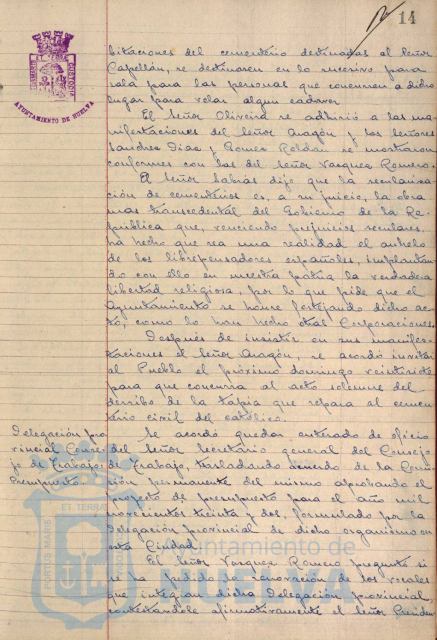 14
AYUNTAMIENTO DE HUELVA
bitaciones del cementerio destinadas al Señor
Capellán, se destinaren en lo sucesivo para
sala para las personas que concurren a dicho
lugar para velar algun cadaver
El Señor Oliveira se adhirió a las ma-
nifestaciones del Señor Aragón y los Señores
Sanchez Diaz y Gomez Roldán se mostraron
conformes con las del Señor Vazquez Romero.
El Señor dijo que la seculariza-
ción de cementerios es, a su juicio, la obra
mas transcedental del Gobierno de la Re-
pública que, venciendo prejuicios seculares,
ha hecho que sea una realidad el anhelo
de los librepensadores españoles, implantan-
do con ello en nuestra patria la verdadera
libertad religiosa, por lo que pide que el
Ayuntamiento se honre festejando dicho ac-
to, como lo han hecho otras Corporaciones.
Despues de insistir en sus manifes-
taciones el Señor Aragón, se acordó invitar
al Pueblo el próximo domingo veintisiete
para que concurra al acto solemne del
derribo de la tapia que separa al cemen-
terio civil del católico.
Delegación pro
vincial Conse-
jo de Trabajo:
Presupuesto.
Se acordó quedar enterado de oficio
del Señor Secretario general del Consejo
de Trabajo, trasladando acuerdo de la Comi-
sión permanente del mismo aprobando el
proyecto de presupuesto para el año mil
novecientos treinta y dos, formulado por la
Delegación provincial de dicho organismo en
esta Ciudad.
El Señor Vazquez Romero pregunta si
se ha pedido la renovación de los vocales
que integran dicha Delegación provincial,
contestándole afirmativamente el Señor Presiden
PORTUS MARIS ET TERRAE
Ayuntamiento de
HUELVA